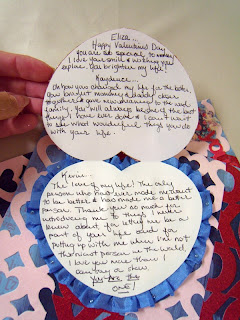 Eliza...
Happy Valentines Day
You are so special to mommy
I love your smile & watching you
explore. You brighten my life!
Kaydence...
Oh how you changed my life for the better.
You brought mommy & daddy closer
together & gave new meaning to the word
family. You will always be one of the best
things I have ever done & I can't wait
to see what wonderful things you do
with your life.
Kevin...
The love of my life! The only
person who has ever made me want
to be better & has made me a better
person. Thank you so much for
introducing me to things I never
knew about, for letting me be a
part of your life and for
putting up with me when I'm not
the nicest person in the world.
I love you more than I
can say or show.
You Are the
ONE!